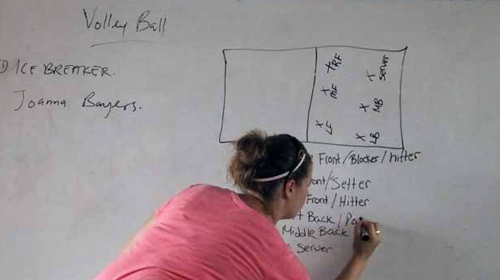 Volley Ball
1) ICE BREAKER.
Joanna Bangers.
X RF
X SERVER
X MF
X MB
X LF
X LB
Front/Blocker/hitter
Front/Setter
Front/Hitter
Back/
Middle Back
Server